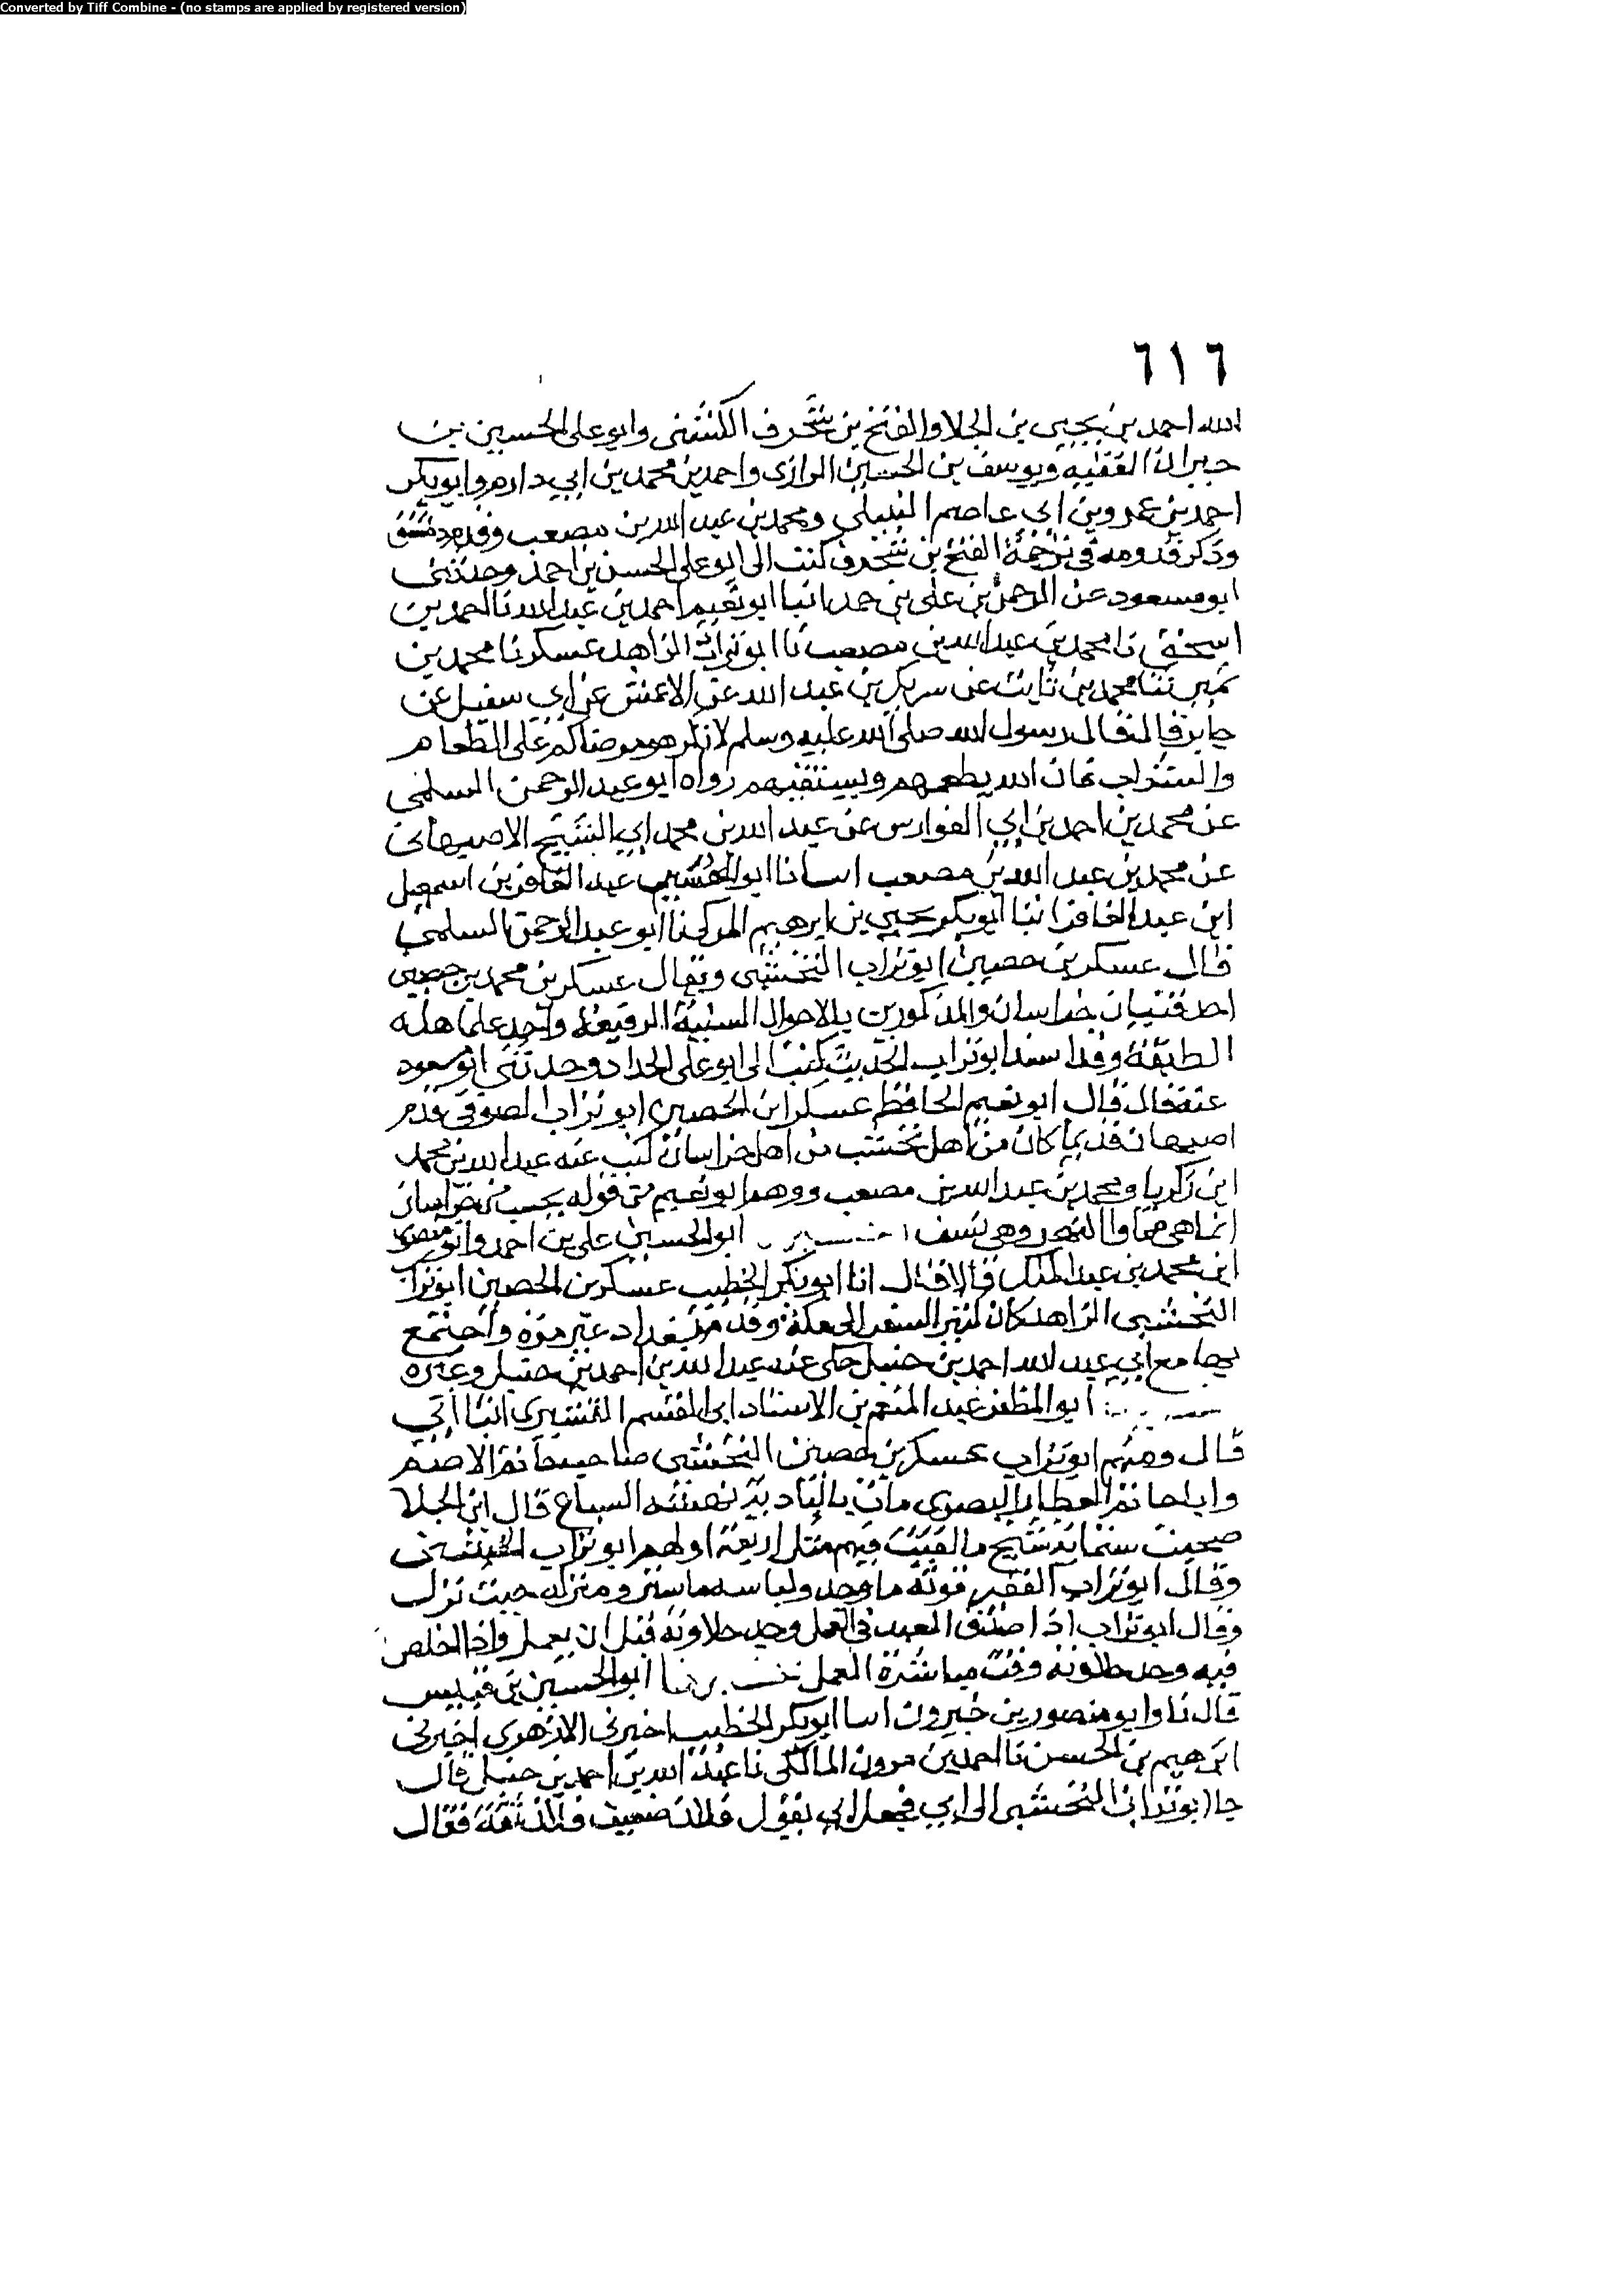 Converted by Tiff Combine - (no stamps are applied by registered version)
٦١٦
الله احمد بن يحيى بن الجلا والفتح بن شخرف الكشى وابو على الحسين بن
خيران الفقيه ويوسف بن الحسين الرازى واحمد بن محمد بن ابي دارم وابو بكر
احمد بن عمرو بن ابي عاصم النبيلي ومحمد بن عبد الله بن مصعب وقدم دمشق
وذكر قدومه في ترجمة الفتح بن شخرف كتب الى ابو على الحسن بن احمد وحدثنى
ابو مسعود عن الرحمن بن على بن حمد انبا ابو نعيم احمد بن عبد الله نا احمد بن
اسحق نا محمد بن عبد الله بن مصعب نا ابو تراب الزاهد عسكر نا محمد بن
نمير نا محمد بن ثابت عن شريك بن عبد الله عن الاعمش عن ابي سفين عن
جابر قال قال رسول الله صلى الله عليه وسلم لا تكرهوا مرضاكم على الطعام
والشراب فان الله يطعمهم ويسقيهم رواه ابو عبد الرحمن السلمى
عن محمد بن احمد بن ابي الفوارس عن عبد الله بن محمد ابي الشيخ الاصبهانى
عن محمد بن عبد الله بن مصعب انبانا ابو الحسن عبد الغافر بن اسمعيل
ابن عبد الغافر انبا ابو بكر يحيى بن ابرهيم المزكى نا ابو عبد الرحمن السلمى
قال عسكر بن حصين ابو تراب النخشبى ويقال عسكر بن محمد بن حصين
احد فتيان خراسان والمذكورين بالاحوال السنية الرفيعة واحد علما هذه
الطبقة وقد اسند ابو تراب الحديث كتب الى ابو على الحداد وحدثنى ابو مسعود
عنه قال قال ابو نعيم الحافظ عسكر ابن الحصين ابو تراب الصوفى قدم
اصبهان قديما كان من اهل نخشب من اهل خراسان كتب عنه عبد الله بن محمد
ابن زكريا ومحمد بن عبد الله بن مصعب ووهم ابو نعيم في قوله نخشب من خراسان
انما هي من ما ورا النهر وهى نسف ابو الحسين على بن احمد وابو منصور
ابن محمد بن عبد الملك قالا قال انا ابو بكر الخطيب عسكر بن الحصين ابو تراب
النخشبى الزاهد كان كثير السفر الى مكة وقدم بغداد غير مرة واجتمع
بها مع ابي عبد الله احمد بن حنبل حكى عنه عبد الله بن احمد بن حنبل وغيره
ابو المظفر عبد المنعم بن الاستاد ابى القسم القشيري انبا ابي
قال ومنهم ابو تراب عسكر بن حصين النخشبى صاحب حاتم الاصم
وابا حاتم العطار البصرى مات بالبادية نهشته السباع قال ابن الجلا
صحبت ستماية شيخ ما لقيت فيهم مثل اربعة اولهم ابو تراب النخشبى
وقال ابو تراب الفقير قوته ما وجد ولباسه ما ستر ومنزله حيث نزل
وقال ابو تراب اذا صدق العبد فى العمل وجد حلاوته قبل ان يعمل واذا اخلص
فيه وجد حلاوته وقت مباشرة العمل ابو الحسين بن قبيس
قال نا وابو منصور بن خيرون انبا ابو بكر الخطيب اخبرنى الازهرى اخبرنى
ابرهيم بن الحسن نا احمد بن مرون المالكى نا عبد الله بن احمد بن حنبل قال
جا ابو تراب النخشبى الى ابي فجعل ابي يقول فلان ضعيف فلان ثقة فقال